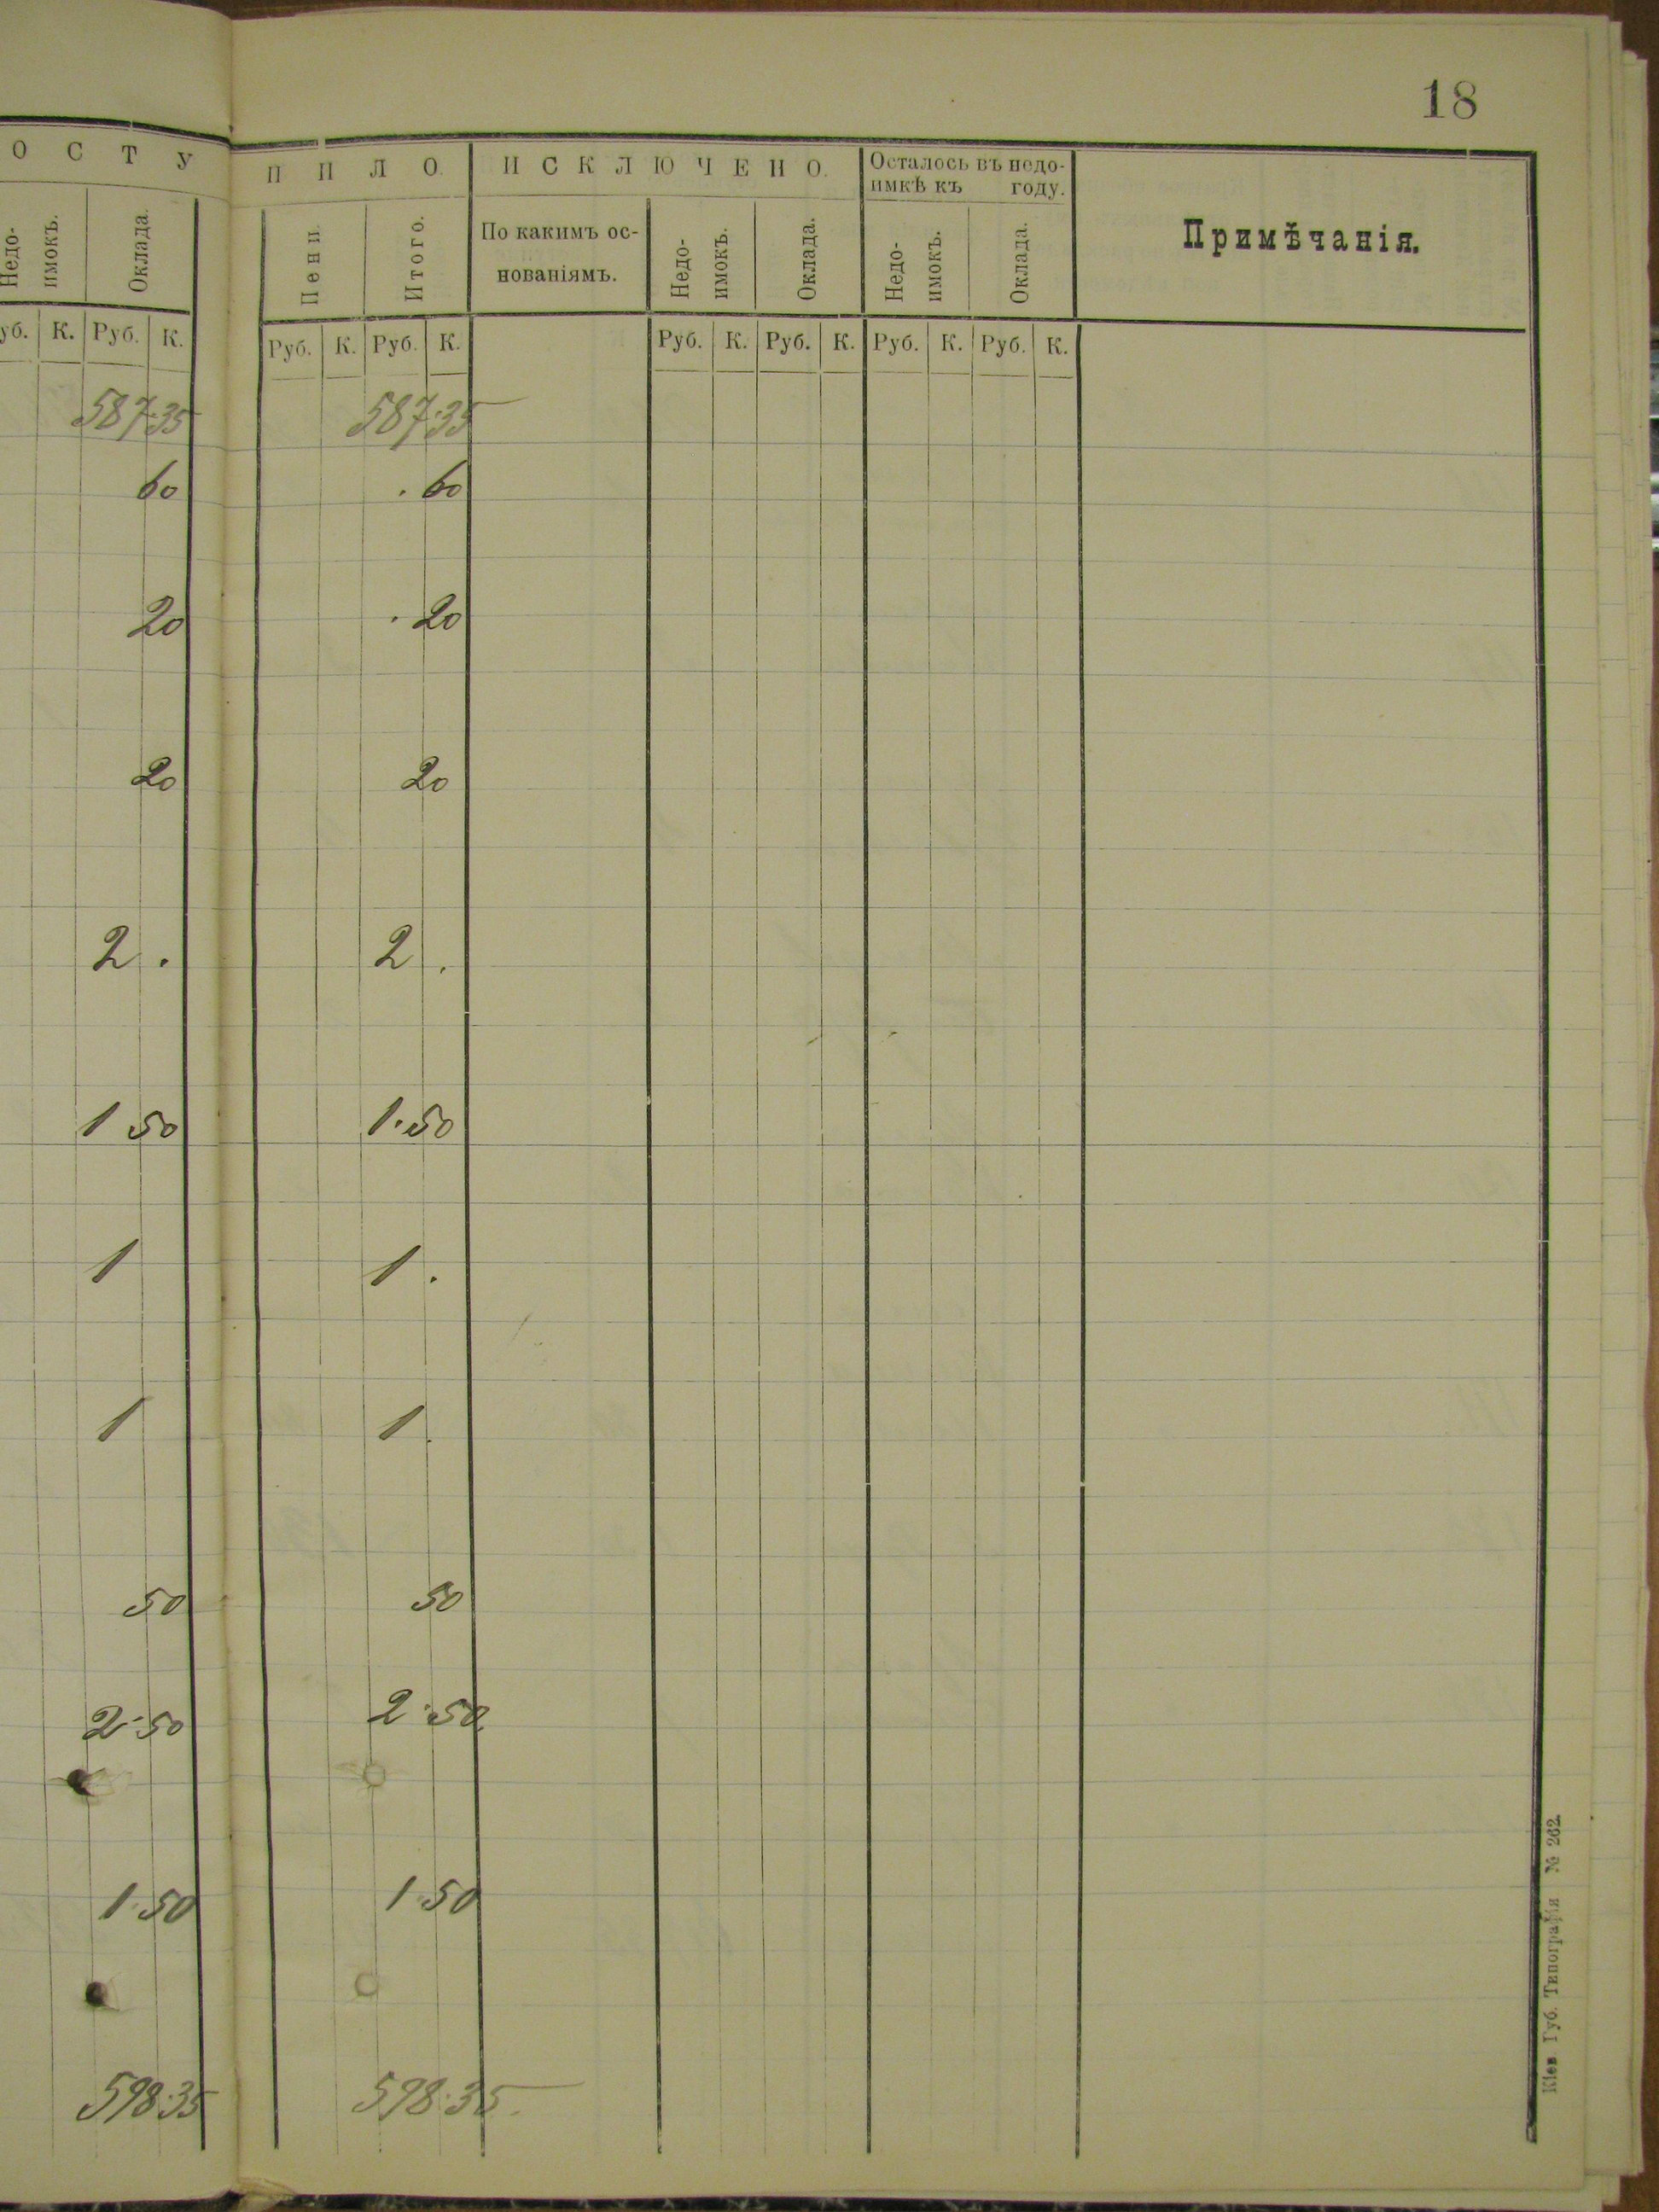 18
ОСТУ ПИЛО. ИСКЛЮЧЕНО. Осталось въ недо-
имкѣ къ году.
Недо-
имокъ. Оклада. Пени. Итого. По какимъ ос-
нованіямъ. Недо-
имокъ. Оклада. Недо-
имокъ. Оклада. Примѣчанія.
уб. К. Руб. К. Руб. К. Руб. К. Руб. К. Руб. К. Руб. К. Руб. К.
587.35 587.35
60 . 60
20 . 20
20 20
2 . 2 .
1 50 1.50
1 1 .
1 1 .
50 50
2.50 2.50.
1.50 1.50
598.35 598.35.
Кіев. Губ. Типографія № 262.